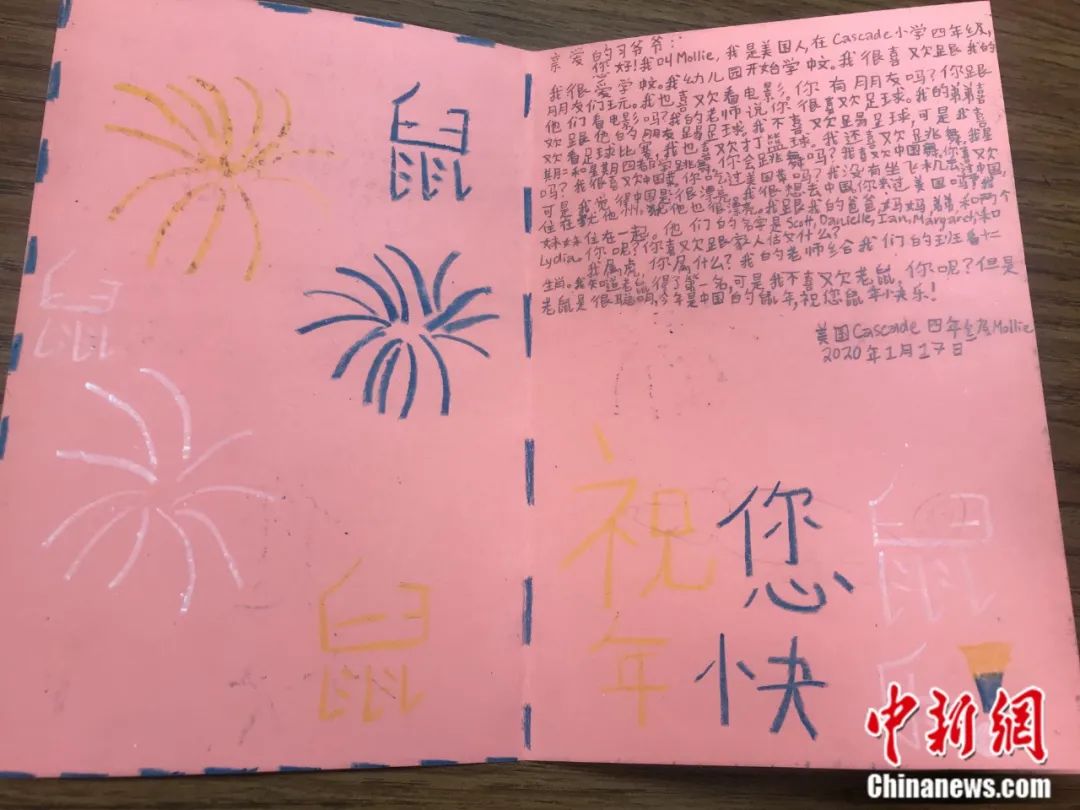 鼠
鼠
鼠
亲爱的习爷爷：
您好！我叫Mollie，我是美国人，在Cascade小学四年级，
我很爱学中文。我幼儿园开始学中文。我很喜欢跟我的
朋友们玩。我也喜欢看电影。你有朋友吗？你跟
他们看电影吗？我的老师说你很喜欢足球。我的弟弟喜
欢跟他的朋友踢足球，我不喜欢踢足球，可是我喜
欢看足球比赛，我也喜欢打篮球。我还喜欢跳舞。我星
期二和星期四都学跳舞。你会跳舞吗？我喜欢中国舞。你喜欢
吗？我很喜欢中国菜。你吃过美国菜吗？我没有坐飞机去过中国，
可是我觉得中国是很漂亮。我很想去中国。你来过美国吗？我
住在犹他州。犹他也很漂亮。我跟我的爸爸妈妈弟弟和两个
妹妹住在一起。他们的名字是Scott, Danielle, Ian, Margaret,和
Lydia。你呢？你喜欢跟家人做什么？
我属虎，你属什么？我的老师给我们的班看十二
生肖。我知道老鼠得了第一名，可是我不喜欢老鼠，你呢？但是
老鼠是很聪明，今年是中国的鼠年，祝您鼠年快乐！
美国Cascade 四年级 Mollie
2020年1月17日
祝您鼠
年快
中新网
Chinanews.com